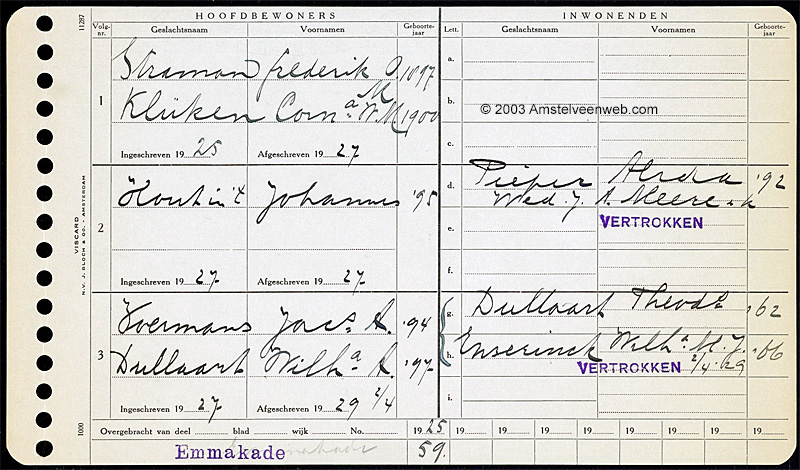 HOOFDBEWONERS
INWONENDEN
11287
Volg-
nr.
Geslachtsnaam
Voornamen
Geboorte-
jaar
Lett.
Geslachtsnaam
Voornamen
Geboorte-
jaar
1
Straman Frederik 1897
Klüken Corna W.M. 1900
Ingeschreven 19 25 Afgeschreven 19 27
a.
b.
© 2003 Amstelveenweb.com
c.
2
Hout in 't Johannes '95
Ingeschreven 19 27 Afgeschreven 19 27
d. Pieper Alida '92
Wed. J. A. Meere
e. VERTROKKEN
f.
3
Hoermans Jacs. A. '94
Dullaart Wilha A. '97
Ingeschreven 19 27 Afgeschreven 19 29 2/4
g. Dullaart Theods '62
h. Enserinck Wilha M. J. '06
VERTROKKEN 2/4 '29
i.
VISCARD
N.V. J. BLOCH & CO. AMSTERDAM
1000
Overgebracht van deel blad wijk No. 19 25 19 19 19 19 19 19 19 19 19
Emmakade 59.